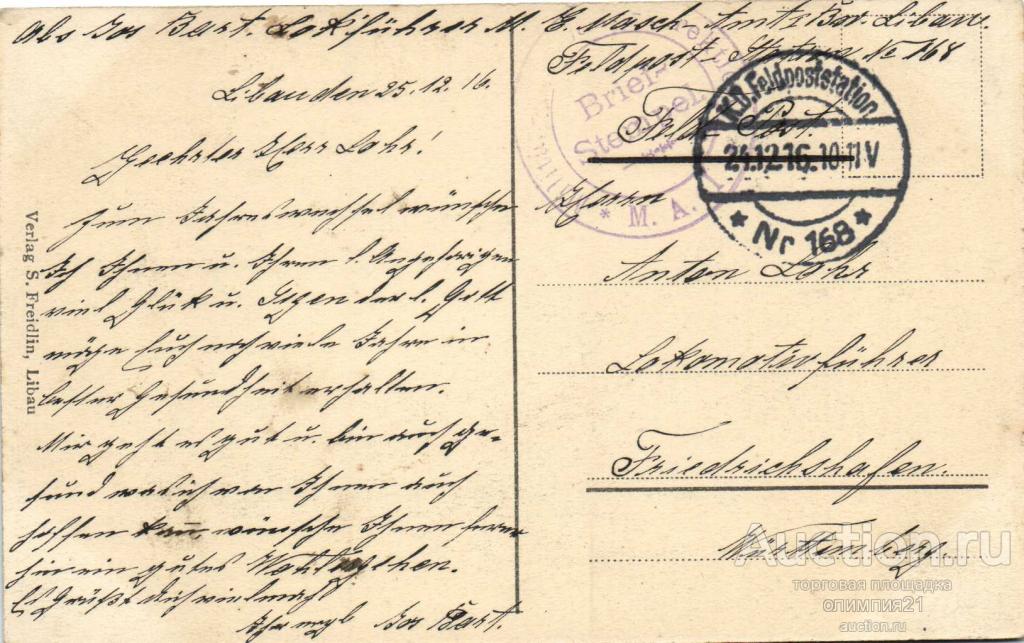 Abs Jos Bart. Lokführer M. E. Masch. Amt 1 Bar. Libau.
Feldpost-Station No 168
Libau den 25.12.16.
Geehrter Herr Lohr!
Zum Jahreswechsel wünsche
Ich Ihnen u. Ihren l. Angehörigen
viel Glück u. Segen der l. Gott
möge Euch noch viele Jahre in
bester Gesundheit erhalten.
Mir geht es gut u. bin auch ge-
sund was ich von Ihnen auch
hoffen kann, wünsche Ihnen ferner
hin ein gutes Wohlergehen.
Es Grüßt Dich vielmals
Ihr Jos Bart.
Verlag S. Freidlin, Libau
Brief-
Stempel
* M. A. 1
K.D. Feldpoststation
24.12.16. 10-11 V
* Nr 168 *
Feld-Post.
Herrn
Anton Lohr
Lokomotivführer
Friedrichshafen.
Württemberg.
Auction.ru
торговая площадка
олимпия21
auction.ru